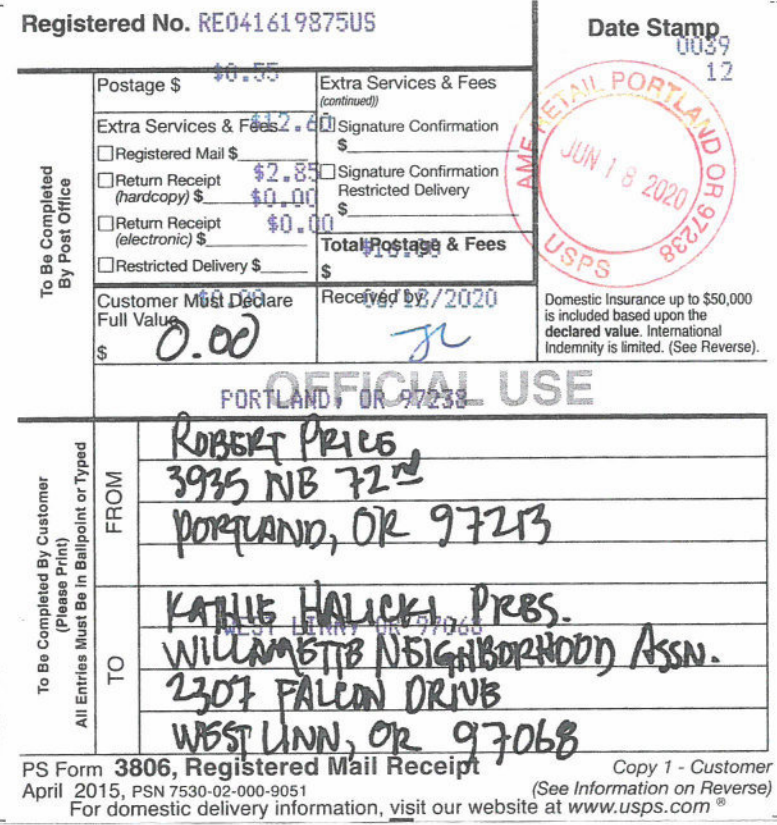 Registered No. RE041619875US
Date Stamp
0039
12
To Be Completed
By Post Office
Postage $ $0.55
Extra Services & Fees $12.60
☐Registered Mail $
☐Return Receipt $2.85
(hardcopy) $ $0.00
☐Return Receipt $0.00
(electronic) $
☐Restricted Delivery $
Extra Services & Fees
(continued))
☐Signature Confirmation
$
☐Signature Confirmation
Restricted Delivery
$
Total Postage & Fees
$
AMF RETAIL PORTLAND OR 97238
JUN 18 2020
USPS
Customer Must Declare
Full Value $0.00
$ 0.00
Received by 06/18/2020
JL
Domestic Insurance up to $50,000
is included based upon the
declared value. International
Indemnity is limited. (See Reverse).
OFFICIAL USE
PORTLAND, OR 97238
To Be Completed By Customer
(Please Print)
All Entries Must Be in Ballpoint or Typed
FROM
ROBERT PRICE
3935 NE 72nd
PORTLAND, OR 97213
TO
KATHIE HALICKI PRES.
WEST LINN, OR 97068
WILLAMETTE NEIGHBORHOOD ASSN.
2307 FALCON DRIVE
WEST LINN, OR 97068
PS Form 3806, Registered Mail Receipt
Copy 1 - Customer
April 2015, PSN 7530-02-000-9051
(See Information on Reverse)
For domestic delivery information, visit our website at www.usps.com ®